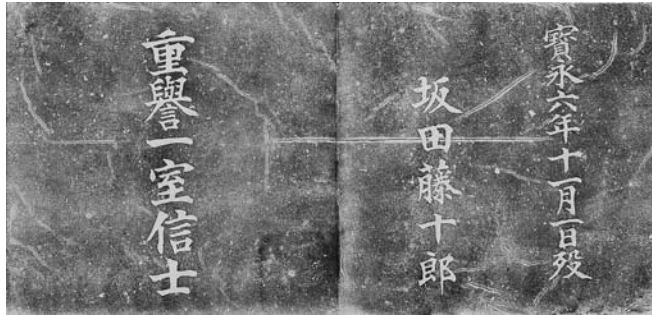 寳永六年十一月一日歿
坂田藤十郎
重譽一室信士